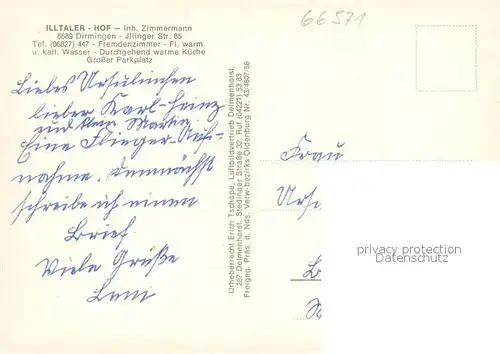 ILLTALER - HOF — Inh. Zimmermann
6689 Dirmingen - Jllinger Str. 85
Tel. (06827) 447 - Fremdenzimmer - Fl. warm.
u. kalt. Wasser - Durchgehend warme Küche
Großer Parkplatz
66571
Liebes Ursulinchen
lieber Karl-Heinz
und klein Martin,
Eine Flieger-Auf-
nahme. Demnächst
schreibe ich einen
Brief.
Viele Grüße
Leni
Urheberrecht Erich Tschöpe, Luftbildvertrieb Delmenhorst,
287 Delmenhorst, Stedinger Straße 32, Ruf (04221) 63 83
Freigeg. Präs. d. Nds. Verw-bezirks Oldenburg Nr. 43/4907/58
Frau
Urs
privacy protection